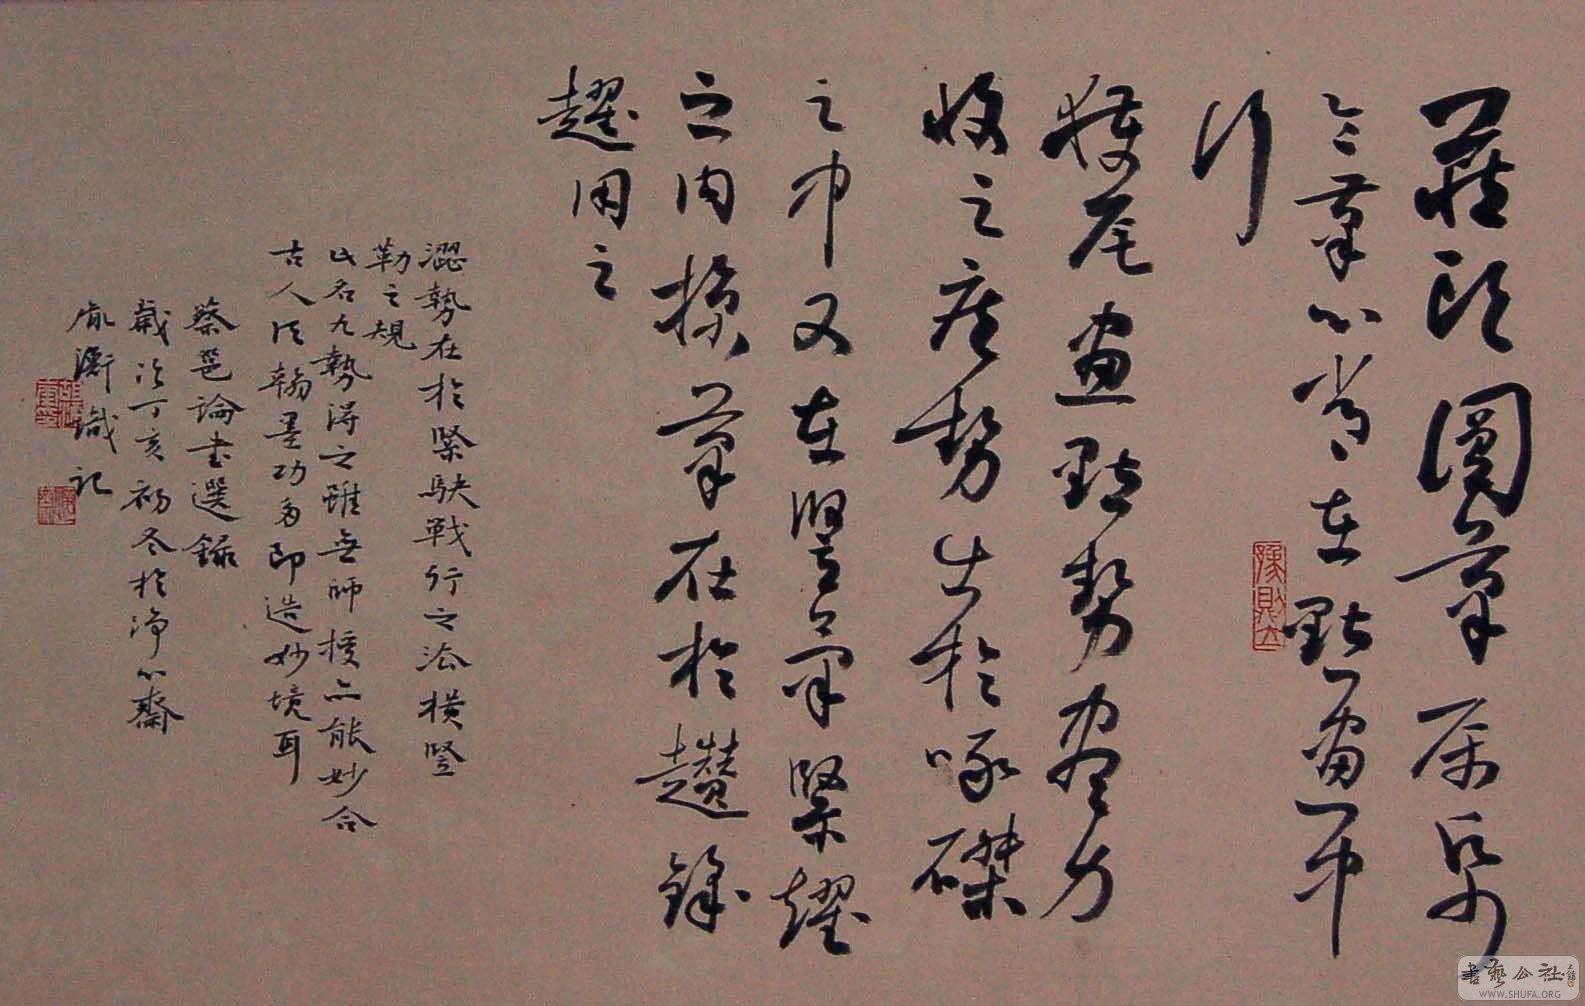 藏頭圓筆屬紙
令筆心常在點畫中
行
護尾畫點勢盡力
收之疾勢出於啄磔
之中又在竪筆緊趯
之内掠筆在於趲鋒
趯用之
澀勢在於緊駃戰行之法橫竪
勒之規
此名九勢得之雖無師授亦能妙合
古人須翰墨功多即造妙境耳
蔡邕論書選錄
歲次丁亥初冬於淨心齋
識記
豫則立
書藝公社
WWW.SHUFA.ORG